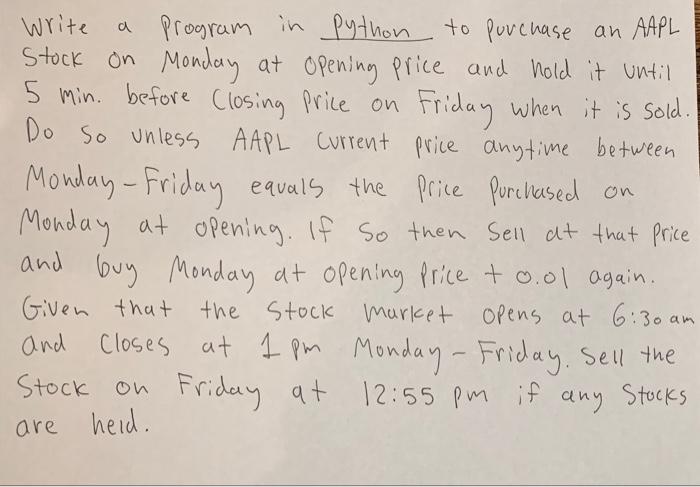 Write a Program in Python to purchase an AAPL
Stock on Monday at opening price and hold it until
5 min. before Closing Price on Friday when it is sold.
Do so unless AAPL Current price anytime between
Monday - Friday equals the Price Purchased on
Monday at opening. If so then Sell at that Price
and buy Monday at opening Price + 0.01 again.
Given that the Stock market opens at 6:30 am
and Closes at 1 pm Monday - Friday. Sell the
Stock on Friday at 12:55 pm if any Stocks
are held.